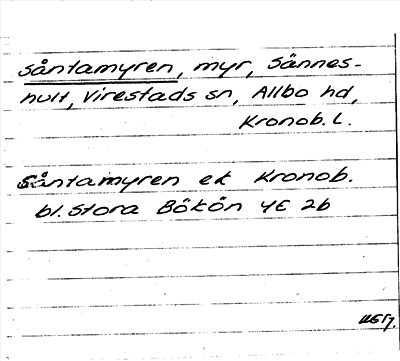 Såntamyren, myr, Sännes-
hult, Virestads sn, Allbo hd,
Kronob. L.
Såntamyren ek Kronob.
bl. Stora Bökön 4E 2b